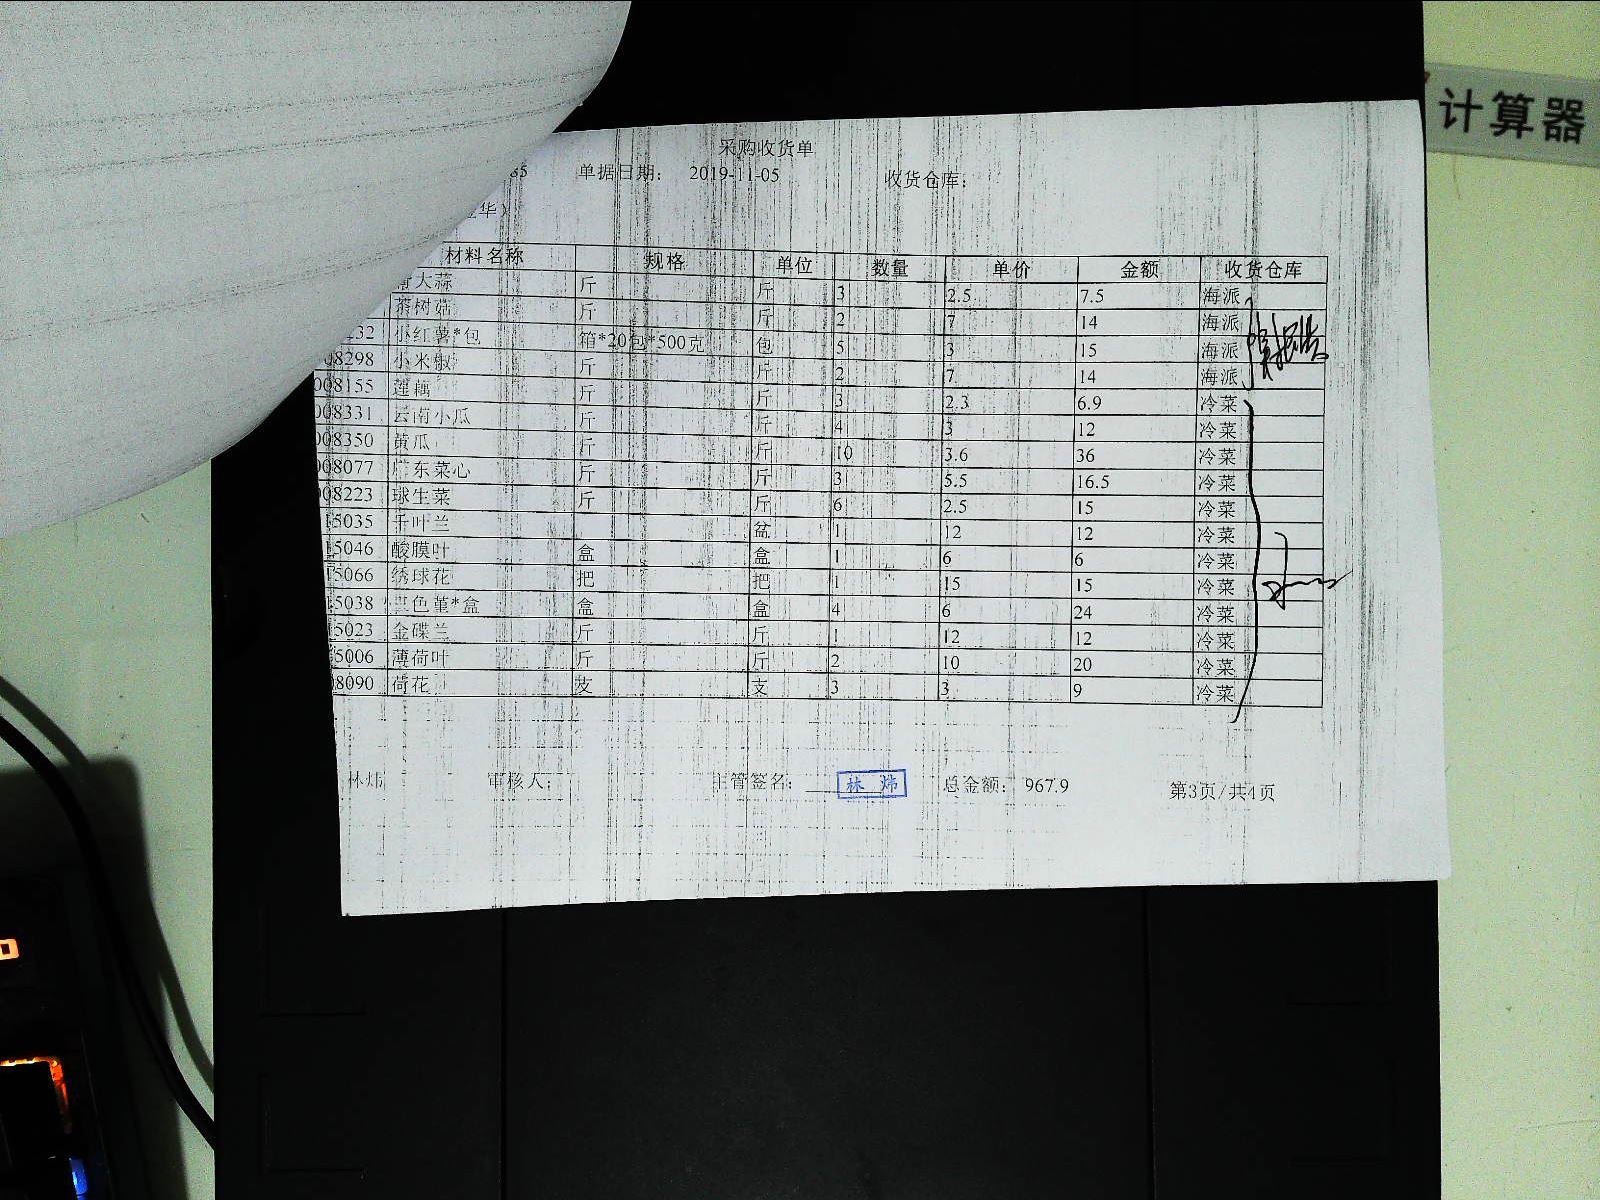 计算器
采购收货单
85 单据日期： 2019-11-05 收货仓库：
金华）
材料名称 规格 单位 数量 单价 金额 收货仓库
青大蒜 斤 斤 3 2.5 7.5 海派
茶树菇 斤 斤 2 7 14 海派
232 小红薯*包 箱*20包*500克 包 5 3 15 海派
08298 小米椒 斤 斤 2 7 14 海派
008155 莲藕 斤 斤 3 2.3 6.9 冷菜
008331 云南小瓜 斤 斤 4 3 12 冷菜
008350 黄瓜 斤 斤 10 3.6 36 冷菜
008077 广东菜心 斤 斤 3 5.5 16.5 冷菜
08223 球生菜 斤 斤 6 2.5 15 冷菜
15035 千叶兰 盆 1 12 12 冷菜
15046 酸膜叶 盒 盒 1 6 6 冷菜
5066 绣球花 把 把 1 15 15 冷菜
5038 三色堇*盒 盒 盒 4 6 24 冷菜
5023 金碟兰 斤 斤 1 12 12 冷菜
5006 薄荷叶 斤 斤 2 10 20 冷菜
8090 荷花 支 支 3 3 9 冷菜
林炜 审核人： 主管签名： 林 炜 总金额： 967.9 第3页/共4页